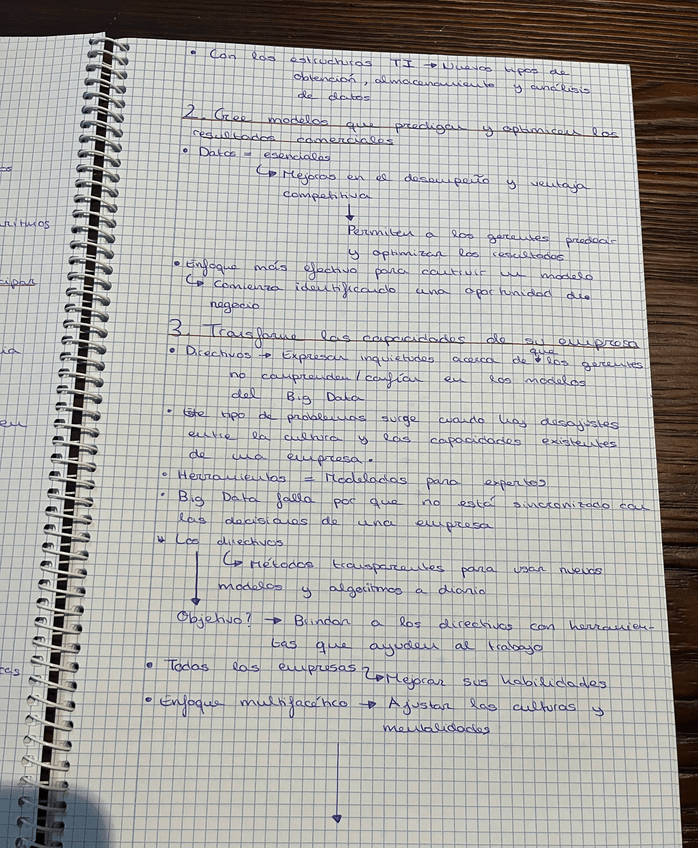 • Con las estructuras TI → Nuevos tipos de
obtención, almacenamiento y análisis
de datos
2. Cree modelos que predigan y optimicen los
resultados comerciales
• Datos = esenciales
↳ Mejoras en el desempeño y ventaja
competitiva
↓
Permiten a los gerentes predecir
y optimizar los resultados
• Enfoque más efectivo para construir un modelo
↳ Comienza identificando una oportunidad de
negocio
3. Transforme las capacidades de su empresa
• Directivos → Expresan inquietudes acerca de que los gerentes
no comprenden/confían en los modelos
del Big Data
• Este tipo de problemas surge cuando hay desajustes
entre la cultura y las capacidades existentes
de una empresa.
• Herramientas = Modelados para expertos
• Big Data falla por que no está sincronizado con
las decisiones de una empresa
• Los directivos
↳ Métodos transparentes para usar nuevos
modelos y algoritmos a diario
↓
Objetivo? → Brindan a los directivos con herramien-
tas que ayuden al trabajo
• Todas las empresas ↳ Mejorar sus habilidades
• Enfoque multifacético → Ajustar las culturas y
mentalidades
↓